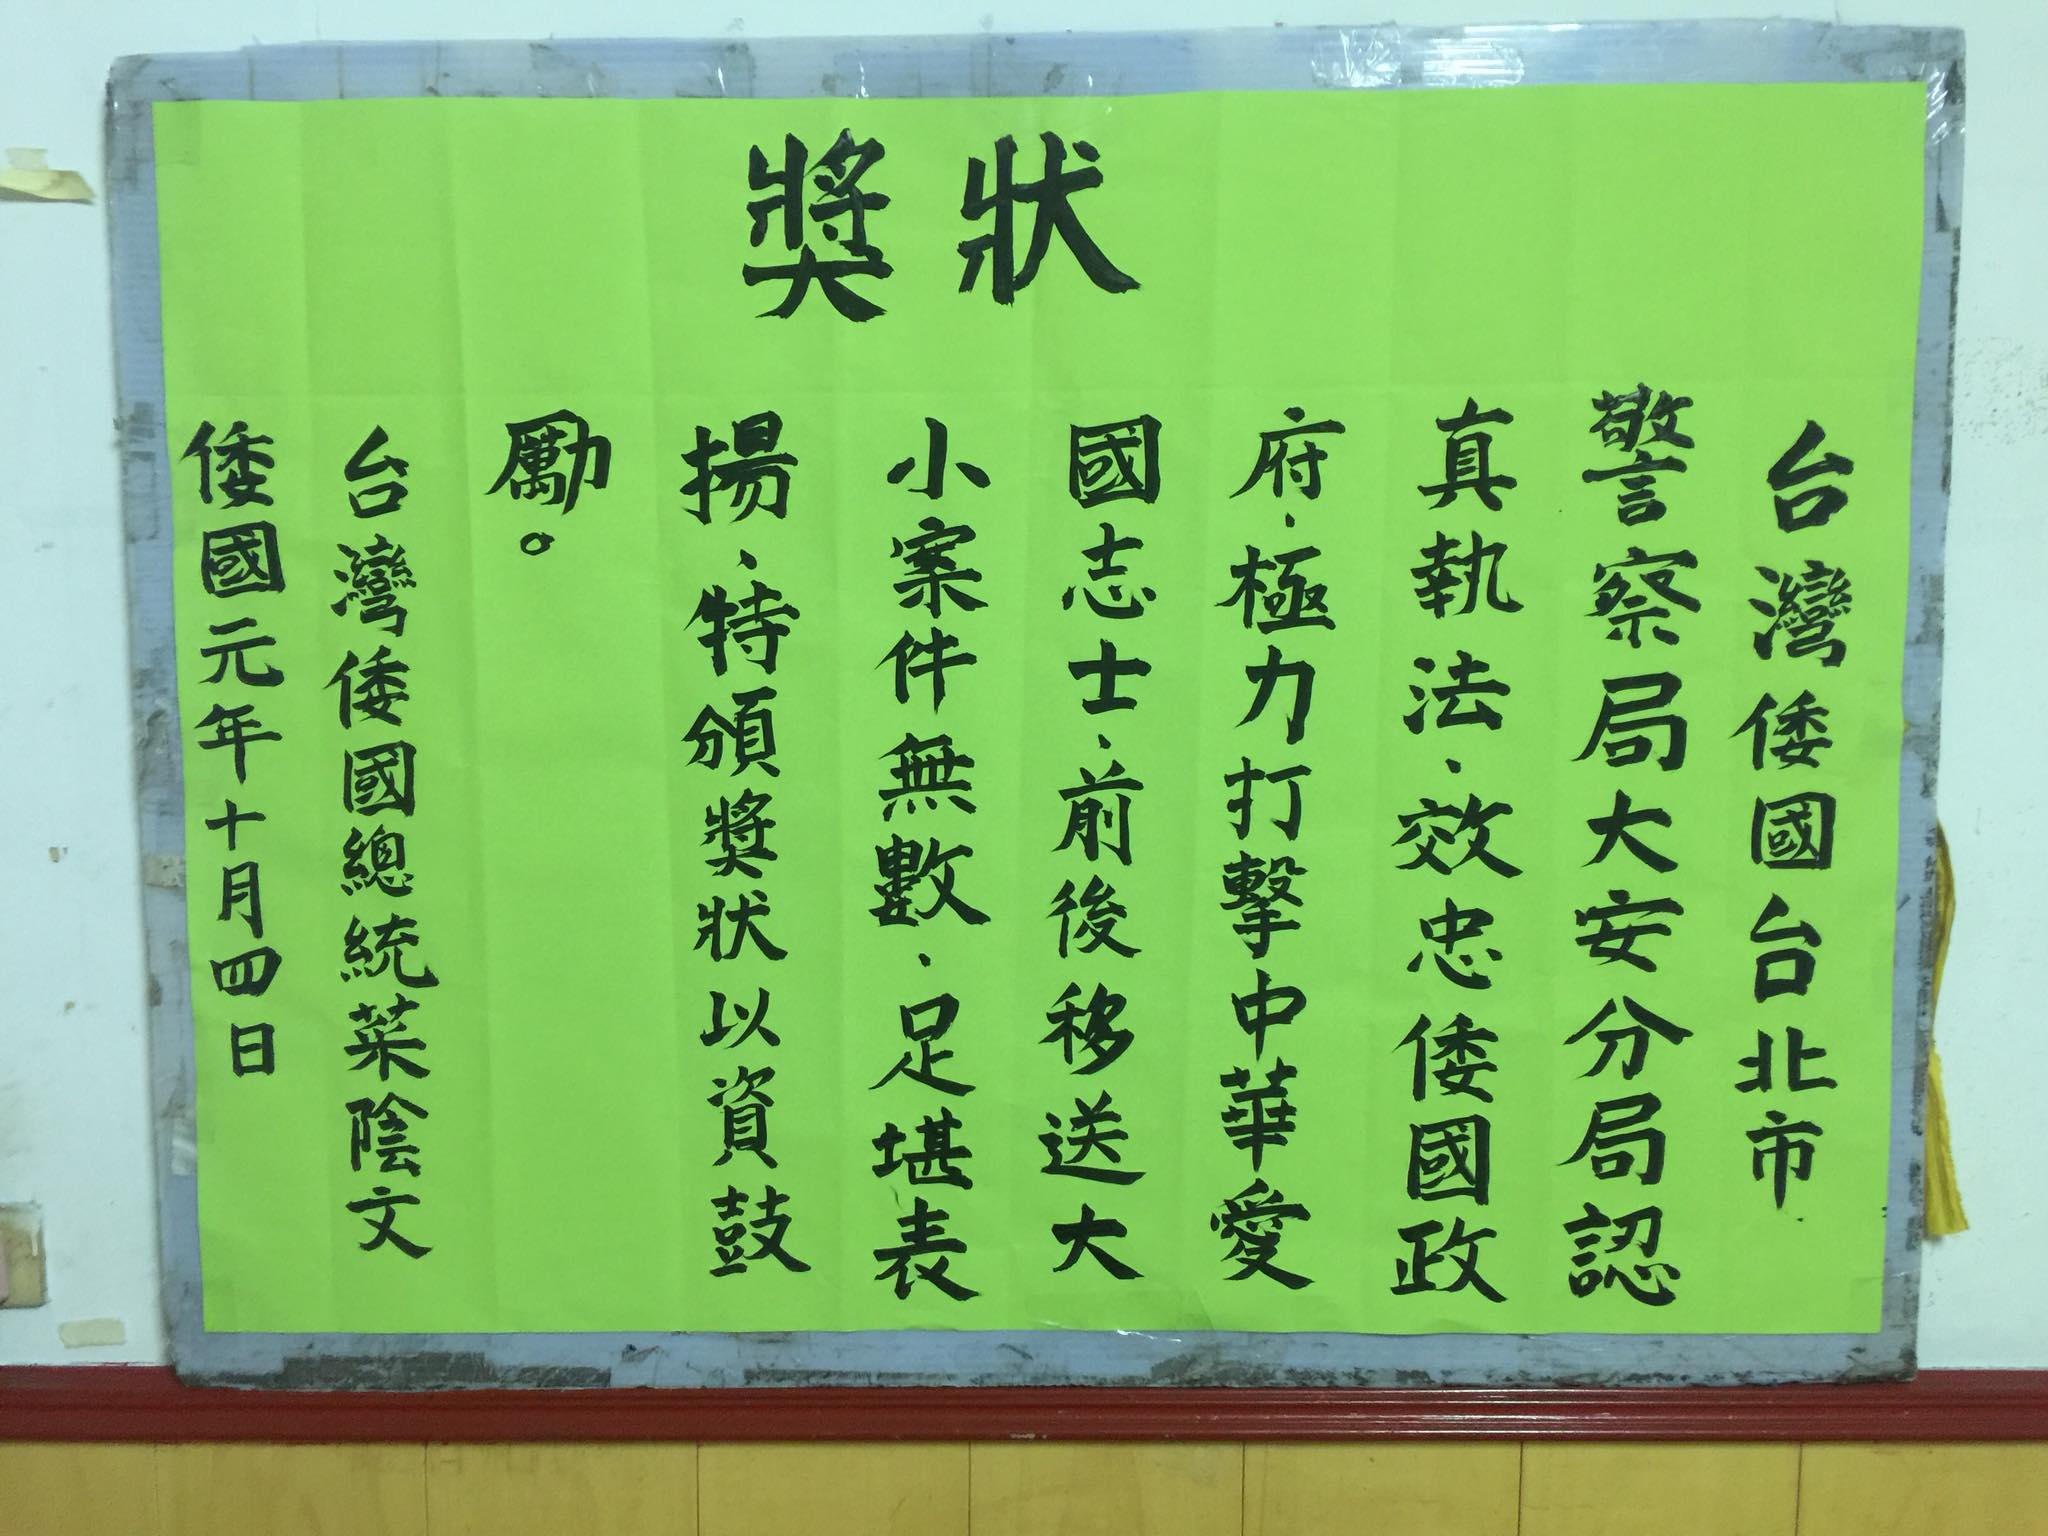 獎狀
台灣倭國台北市
警察局大安分局認
真執法、效忠倭國政
府、極力打擊中華愛
國志士、前後移送大
小案件無數、足堪表
揚、特頒獎狀以資鼓
勵。
台灣倭國總統菜陰文
倭國元年十月四日